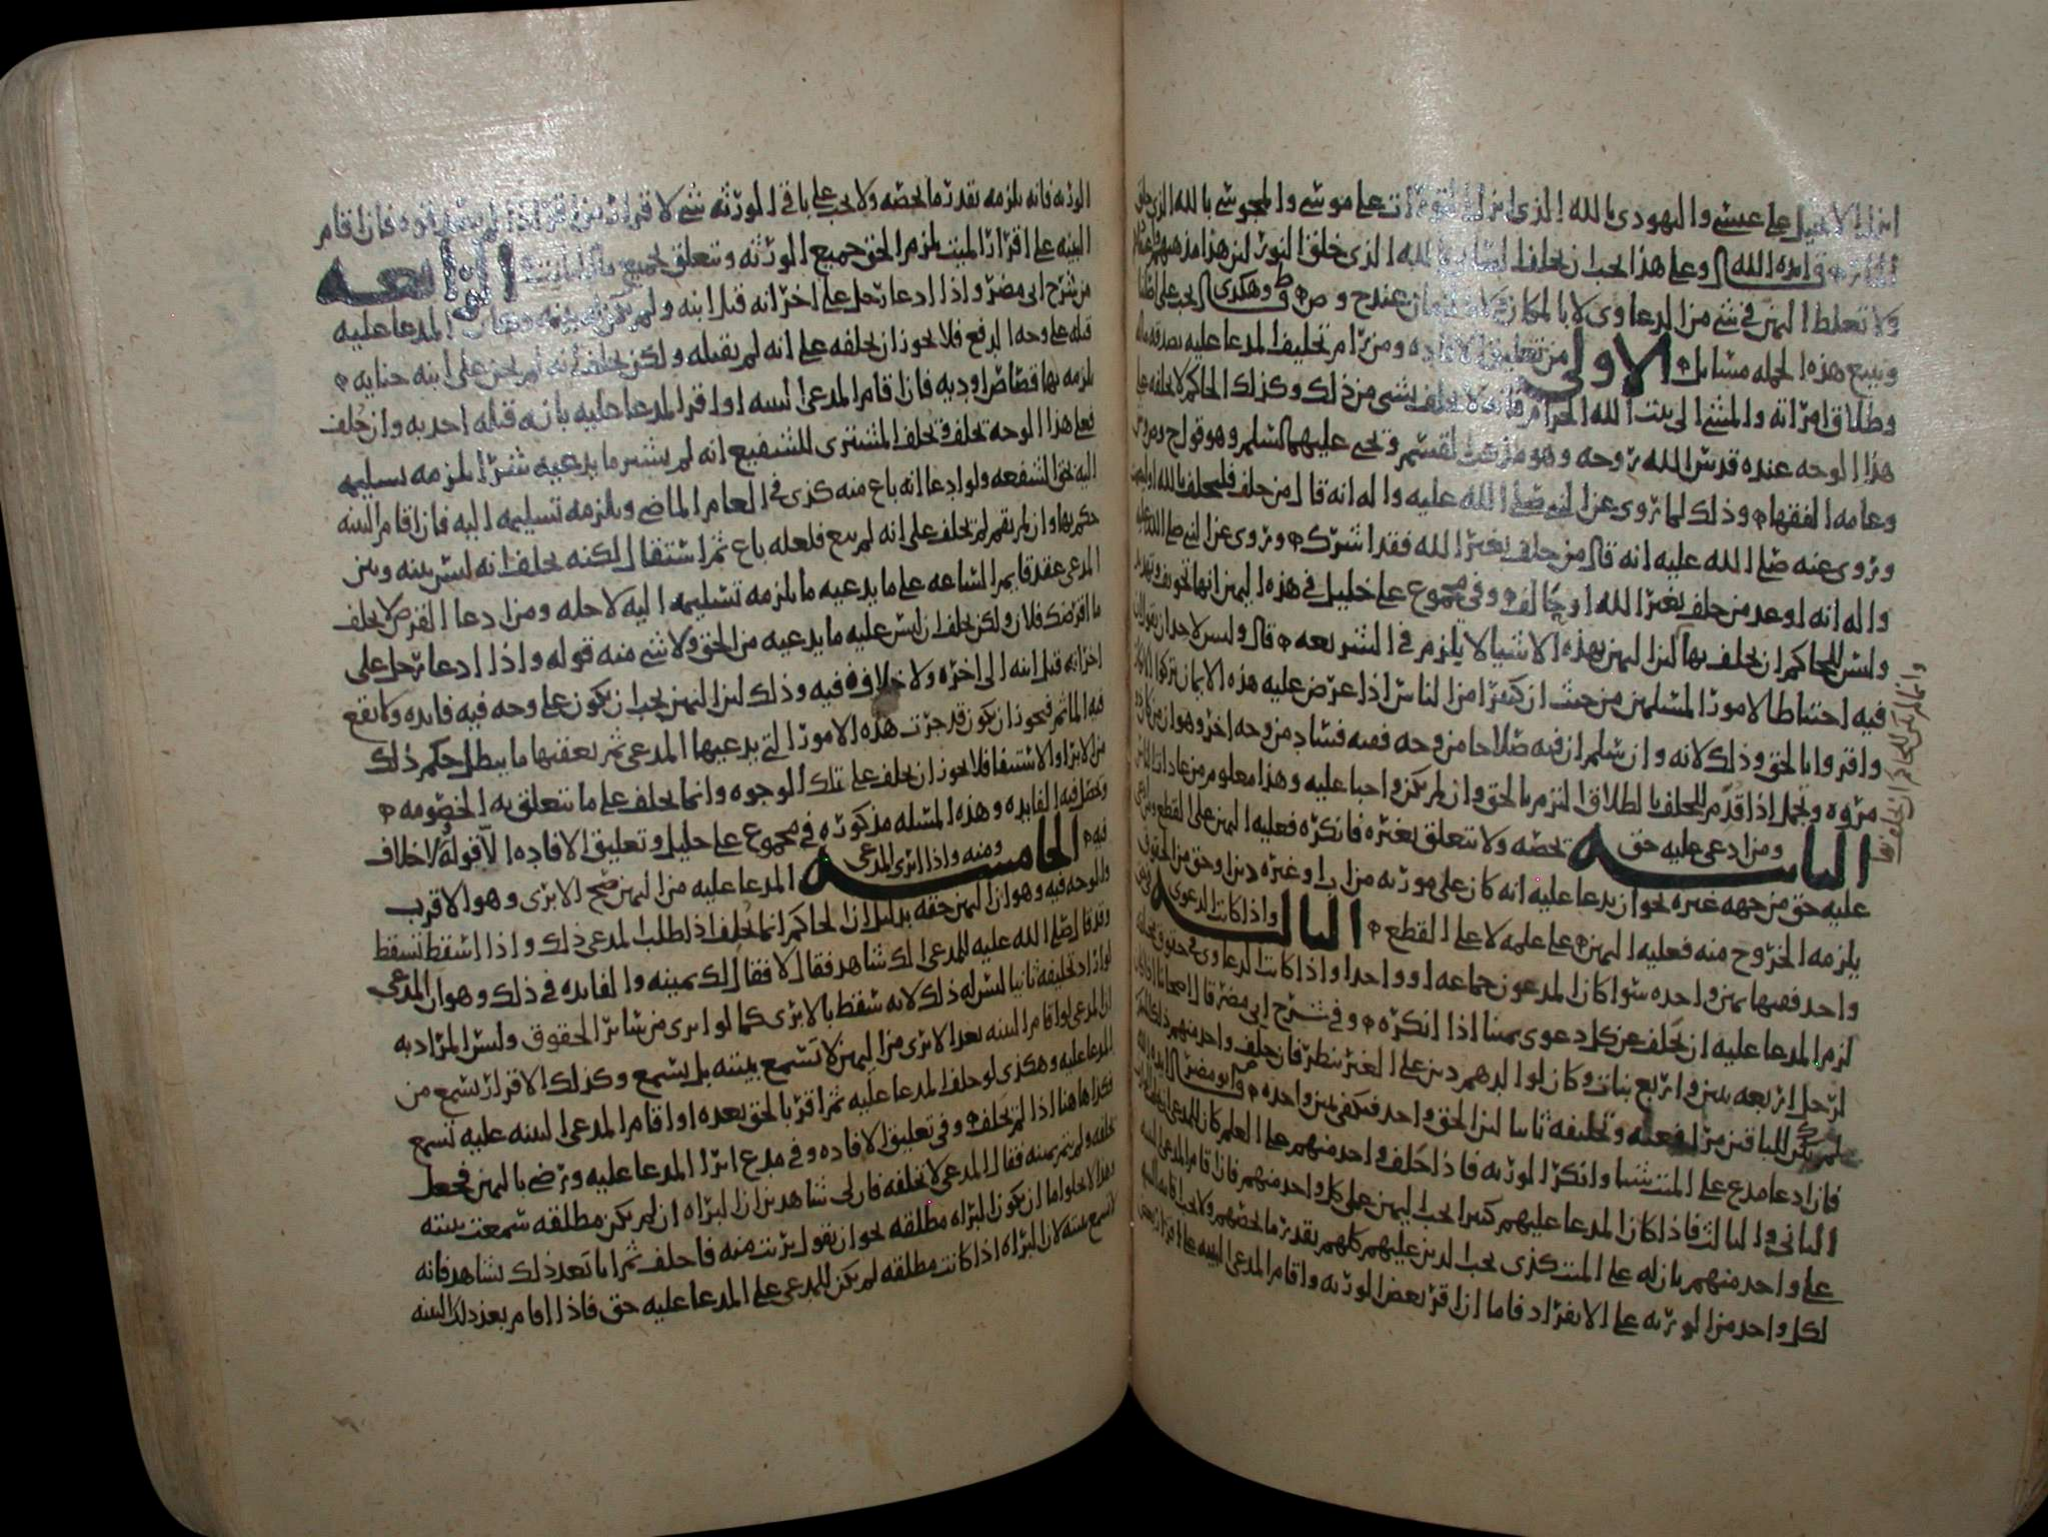 انزل الانجيل على عيسى واليهودي بالله الذي انزل التوراة على موسى والمجوسي بالله الذي خلق
وعلى هذا يجب ان يحلف بالله الذي خلق النور لان هذا مذهبهم
ولا تغلظ اليمين في شي من الدعاوى لا بالمكان ولا بالزمان عندح و ص وهكذى
ويتبع هذه الجمله مسايل الاولى من تعليق الافاده ومن رام تحليف المدعا عليه بصدقه ماله
وطلاق امراته والمشي الى بيت الله الحرام فانه لا يحلف بشي من ذلك وكذلك الحاكم لا يحلفه على
هذا الوجه عنده قدس الله روحه وهو مذهب القسم ويحيى عليهما السلم وهو قول ح
وعامه الفقها وذلك لما روي عن النبي صلى الله عليه واله انه قال من حلف فليحلف بالله او ليصمت
وروي عنه صلى الله عليه انه قال من حلف بغير الله فقد اشرك وروي عن النبي صلى الله عليه
واله انه اوعد من حلف بغير الله او حالف وفي مجموع علي خليل في هذه اليمين انها تخويف وتهديد
وليس للحاكم ان يحلف بها لان اليمين بهذه الاشيا لا يلزم في الشريعه قال وليس لاحد ان يقول ان
فيه احتياطا لامور المسلمين من حيث ان كثيرا من الناس اذا عرض عليه هذه الايمان تركوا الانكار
واقروا بالحق وذلك لانه وان سلم ان فيه صلاحا من وجه ففيه فساد من وجه اخر وهو ان من كان ذا
مروه وتجمل اذا قدم للحلف بالطلاق التزم بالحق وان لم يكن واجبا عليه وهذا معلوم من عادات الناس
الثانيه ومن ادعى عليه حق يخصه ولا يتعلق بغيره فانكره فعليه اليمين على القطع ومن ادعى
عليه حق من جهه غيره نحو ان يدعا عليه انه كان على مورثه من اب او غيره دين او حق من الحقوق
يلزمه الخروج منه فعليه اليمين على علمه لا على القطع الثالثه واذا كانت الدعوى
واحد ففيها يمين واحده سوا كان المدعون جماعه او واحدا واذا كانت الدعاوى في حقوق مختلفه
لزم المدعا عليه ان يحلف عن كل دعوى يمينا اذا انكره وفي شرح ابي مضر قال اصحابنا
لرجل اربعه بنين واربع بنات وكان لوالدهم دين على الغير ينظر فان حلف واحد منهم ذلك الغير
لم يكن للباقين من فعله وتحليفه ثانيا لان الحق واحد فيكفي يمين واحده
فان ادعا مدع على الميت شيا وانكر الورثه فاذا حلف واحد منهم على العلم كان للمدعي ان يحلف
الثاني والثالث فاذا كان المدعا عليهم كثيرا يجب اليمين على كل واحد منهم فاذا اقام المدعي البينه
على واحد منهم بان له على الميت كذى يجب الدين عليهم كلهم بقدر ما يخصهم ولا يجب اقامه البينه
لكل واحد من الورثه على الانفراد فاما ان اقر بعض الورثه واقام المدعي البينه على اقرار بعض
وانما لم يكن للحاكم ان يحلف بها
الورثه فانه يلزمه بقدر ما يخصه ولا يجب على باقي الورثه شي لا قرار من اقر اذا لم يصدقوه فان اقام
البينه على اقرار الميت يلزم الحق جميع الورثه ويتعلق بجميع مال الميت الرابعه
من شرح ابي مضر واذا ادعا رجل على اخر انه قتل ابنه ولم يكن له بينه وكان المدعا عليه
قتله على وجه الدفع فلا يجوز ان يحلفه على انه لم يقتله ولكن يحلف انه لم يجن على ابنه جنايه
يلزمه بها قصاص او ديه فان اقام المدعي البينه او اقر المدعا عليه بانه قتله اخذ به وان حلف
فعلى هذا الوجه تخلف ويحلف المشتري للشفيع انه لم يشتر ما يدعيه شفرا يلزمه تسليمه
اليه بحق الشفعه ولو ادعا انه باع منه كذى في العام الماضي ويلزمه تسليمه اليه فان اقام البينه
حكم بها وان لم يقم لم يحلف على انه لم يبع فلعله باع ثم استقال لكنه يحلف انه ليس بينه وبين
المدعي عقد قايم الساعه على ما يدعيه ما يلزمه تسليمه اليه لاجله ومن ادعا القرض لا يحلف
ما اقرضك فلان ولكن يحلف ان ليس عليه ما يدعيه من الحق ولا شي منه قوله واذا ادعا رجل على
اخر انه قتل ابنه الى اخره ولا خلاف فيه وذلك لان اليمين يجب ان يكون على وجه فيه فايده ولا يقع
فيه الماثم فيجوز ان يكون قد جرت هذه الامور التي يدعيها المدعي ثم يعقبها ما يبطل حكم ذلك
من الابرا او الاستيفا فلا يجوز ان يحلف على تلك الوجوه وانما يحلف على ما يتعلق به الخصومه
وتحصل فيه الفايده وهذه المسله مذكوره في مجموع علي خليل وتعليق الافاده الا قوله لا خلاف
فيه الخامسه ومنه واذا ابرى المدعي المدعا عليه من اليمين صح الابرى وهو الاقرب
والوجه فيه وهو ان اليمين حقه بدليل ان الحاكم انما يحلف اذا طلب المدعي ذلك واذا اسقط تسقط
وقد قال صلى الله عليه للمدعي الك شاهد فقال لا فقال لك يمينه والفايده في ذلك وهو ان المدعي
لو اراد تحليفه ثانيا ليس له ذلك لانه سقط بالابرى كما لو ابرى من ساير الحقوق وليس المراد به
ان المدعي لو اقام البينه بعد الابرى من اليمين لا تسمع بينته بل يسمع وكذلك الاقرار يسمع من
المدعا عليه وهكذى لو حلف المدعا عليه ثم اقر بالحق بعده او اقام المدعي البينه عليه تسمع
فكذا هاهنا اذا لم يحلف وفي تعليق الافاده وفي مدع ابرا المدعا عليه ورضي باليمين فجعل
يحلفه ولم يتم يمينه فقال المدعي لا تحلفه فان لي شاهدين ان البراه ان لم يكن مطلقه سمعت بينته
وهذا لا يخلوا اما ان يكون البراه مطلقه نحو ان يقول بريت منه فاحلف ثم اتا بعد ذلك بشاهد فانه
لا تسمع بينته لان البراه اذا كانت مطلقه لم يكن للمدعي على المدعا عليه حق فاذا اقام بعد ذلك البينه